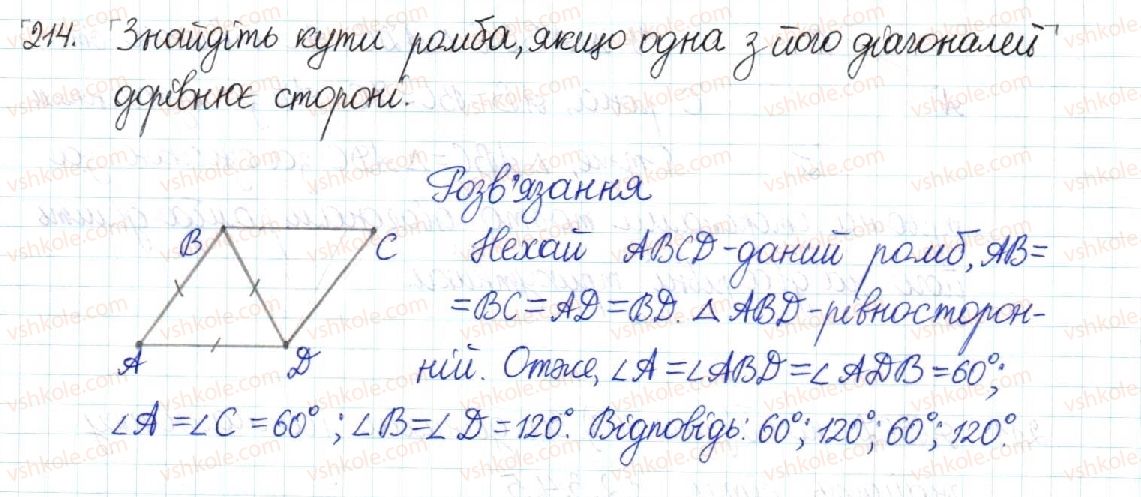 214. Знайдіть кути ромба, якщо одна з його діагоналей
дорівнює стороні.
Розв'язання
B C
A D
Нехай ABCD - даний ромб, AB =
= BC = AD = BD. △ ABD - рівносторон-
ній. Отже, ∠A = ∠ABD = ∠ADB = 60°;
∠A = ∠C = 60°; ∠B = ∠D = 120°. Відповідь: 60°; 120°; 60°; 120°.
vshkole.com